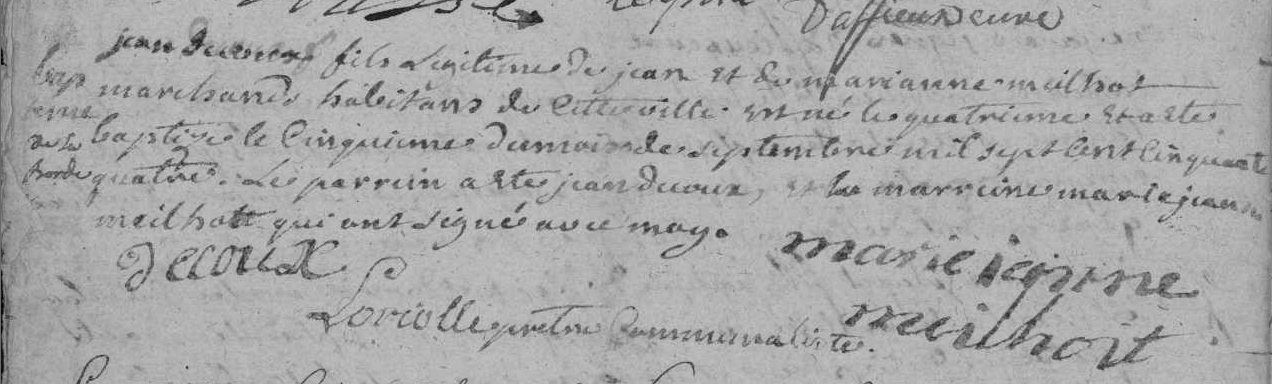 Daffieux curé
jean decoux fils Legitime de jean et de marianne meilhot
marchands habitans de Cette ville est né le quatrieme et a ete
baptise le Cinquieme du mois de septembre mil sept Cent Cinquante
quatre. Le parrein a ete jean decoux, et la marreine marie jeanne
meilhott qui ont signé avec moy.
bap
teme
de la
Borde
Decoux
marie ieanne
meilhott
Loriolle pretre Communaliste.